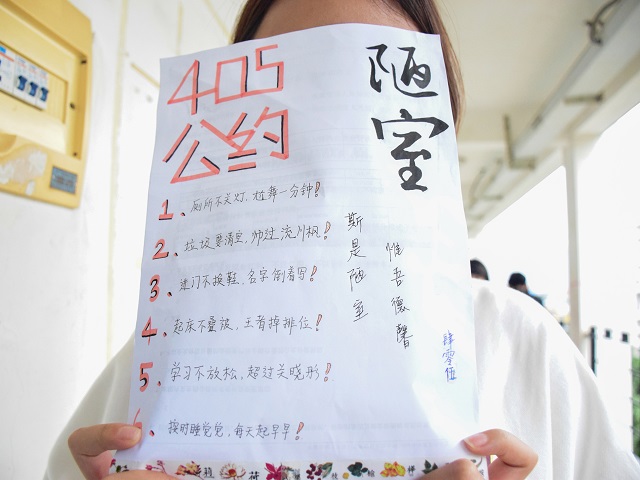 405
公约
陋室
1、厕所不关灯,坟葬一分钟!
2、垃圾要清空,帅过流川枫!
3、进门不换鞋,名字倒着写!
4、起床不叠被,王者掉排位!
5、学习不放松,超过关晓彤!
6、按时睡觉觉,每天起早早!
斯是陋室
惟吾德馨
肆零伍